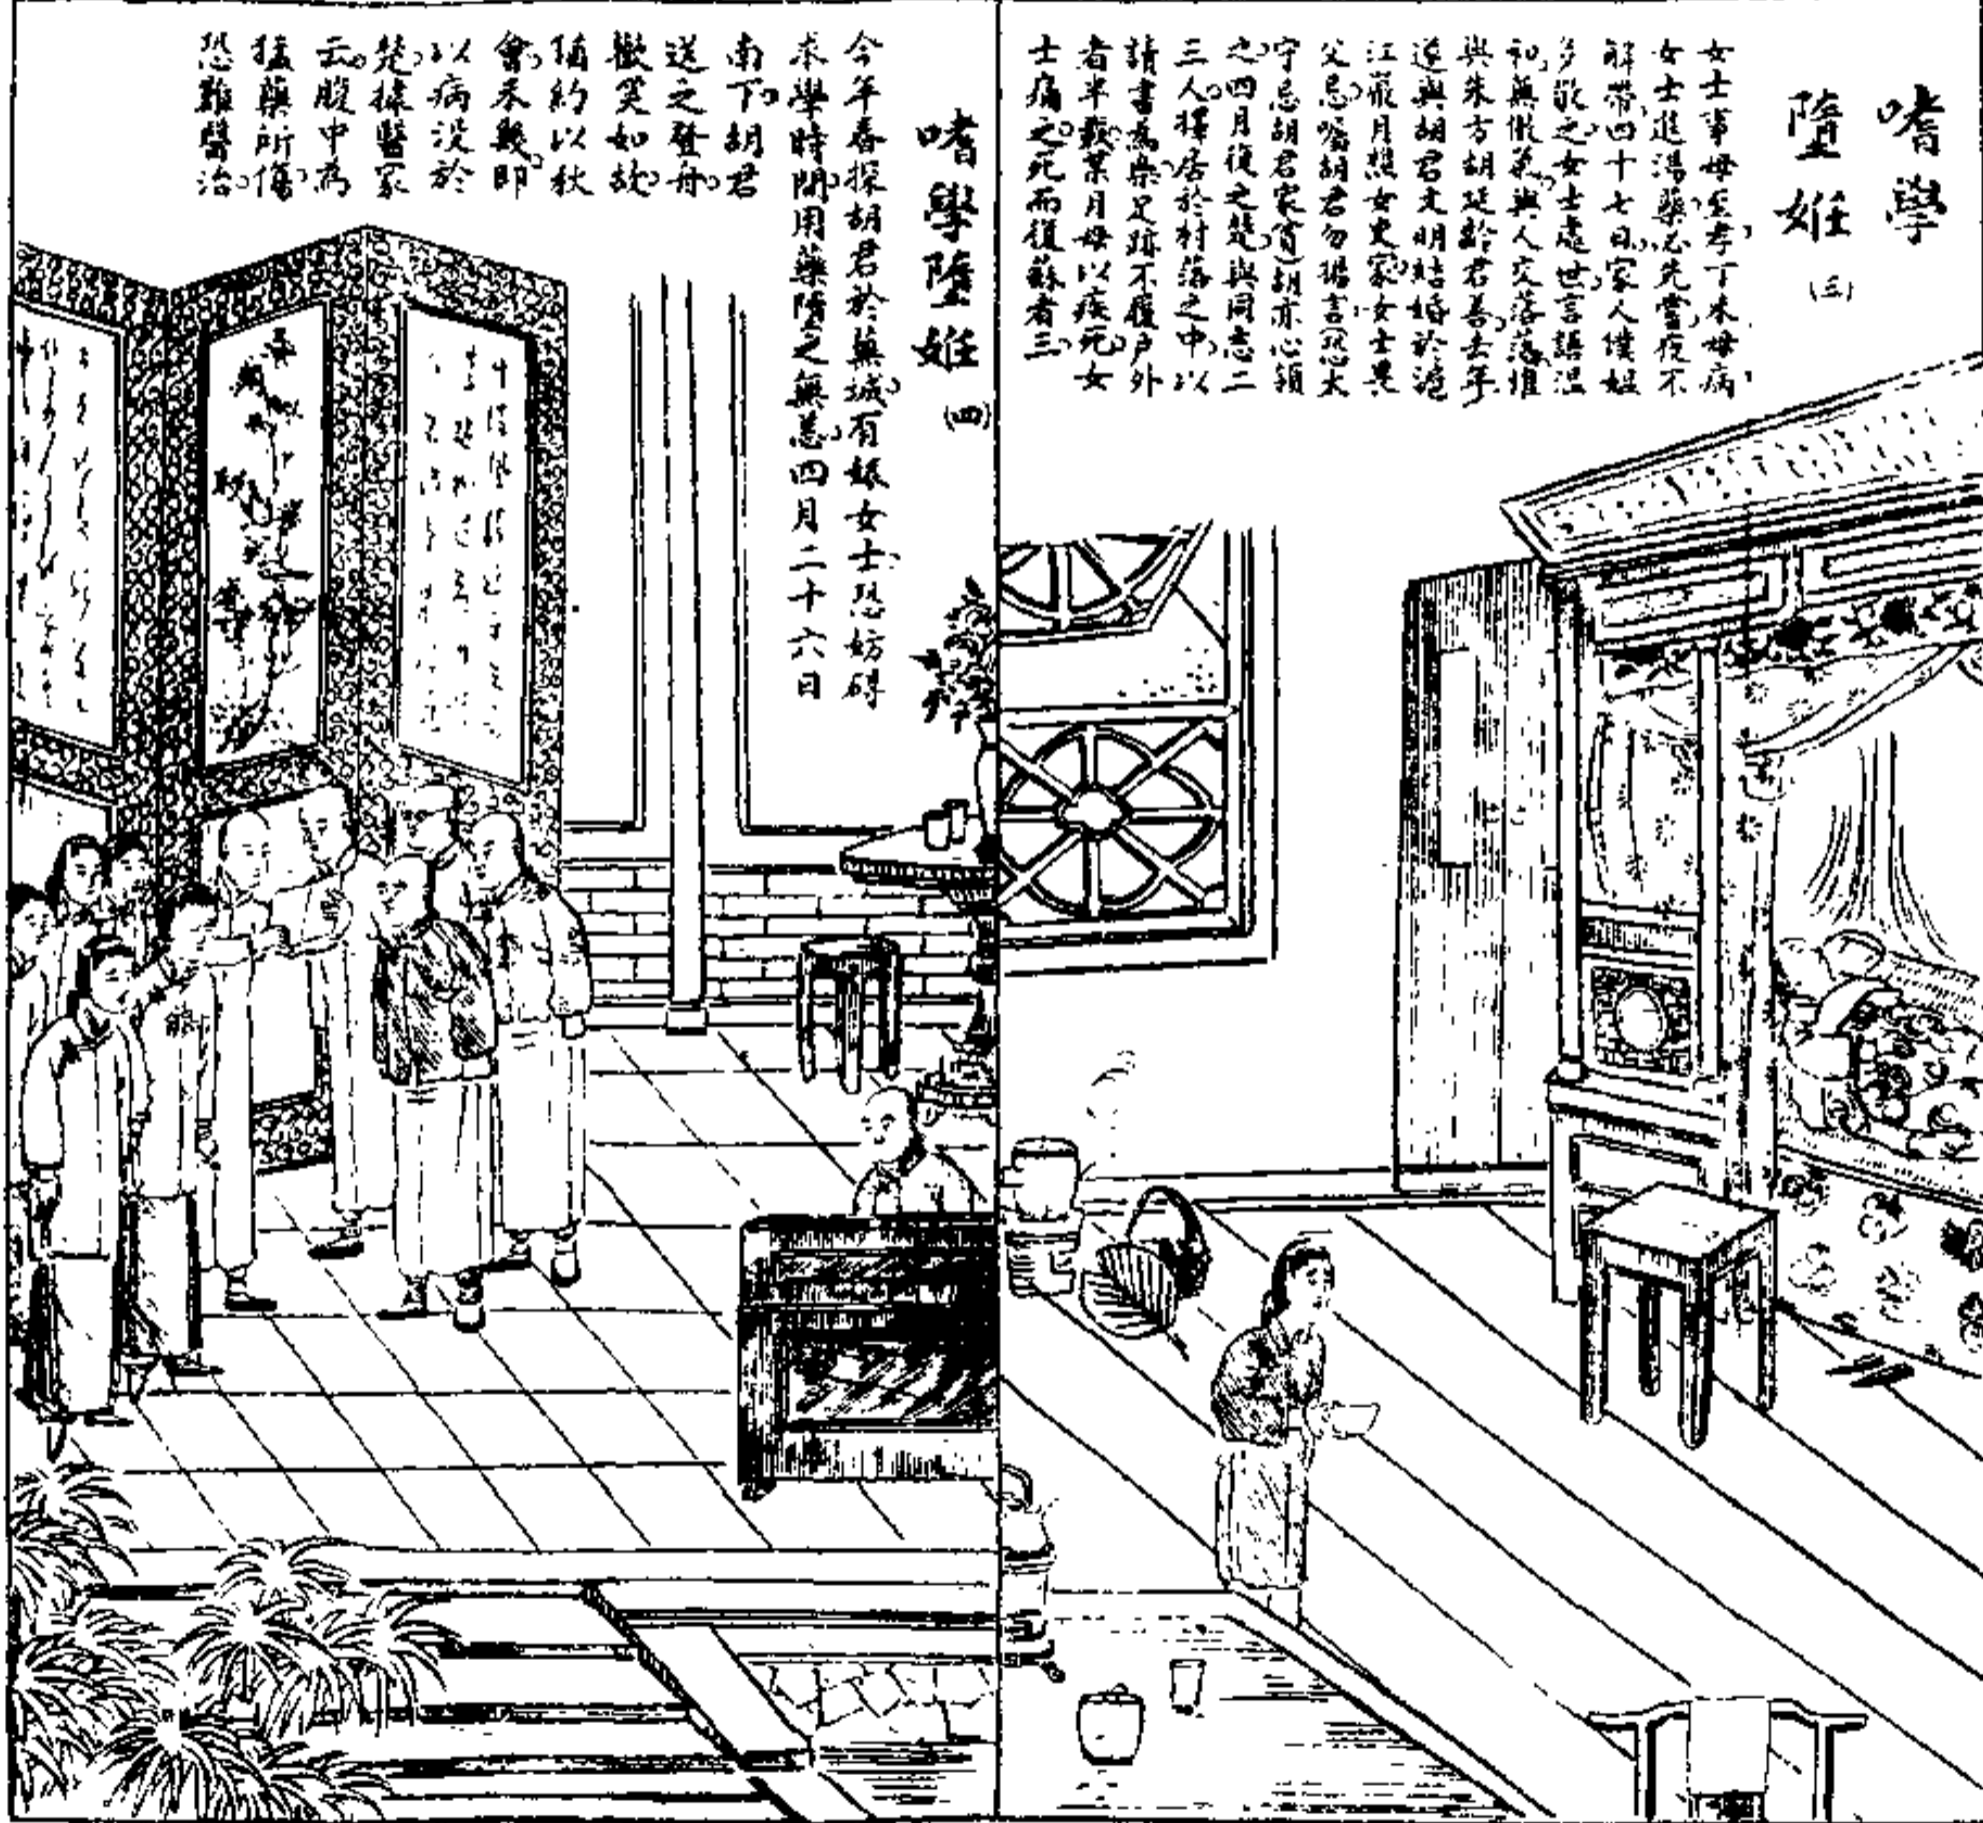 嗜學
墮姙
(三)
女士事母至孝丁未母病
女士進湯藥必先嘗夜不
解帶四十七日家人僕媼
多敬之女士處世言語溫
和無傲氣與人交落落惟
與朱方胡延齡君善去年
遂與胡君文明結婚於滬
江嚴月想女史家女士畏
父忌囑胡君勿揚言(恐大
守忌胡君家貧)胡亦心領
之四月復之楚與同志二
三人擇居於村落之中以
請書為樂足跡不履户外
者半載葉月母以疾死女
士痛之死而復蘇者三
嗜學墮姙
(四)
今年春探胡君於蕪城有娠女士恐妨碍
求學時間用藥墮之無恙四月二十六日
南下胡君
送之登舟
歡笑如故
猶約以秋
會未幾即
以病没於
楚據醫家
云腹中為
猛藥所傷
恐難醫治